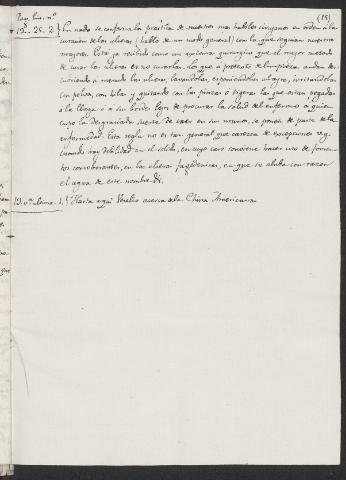 (15)
Pag. lin. nº
12. 25. 2 } En nada se conforma la práctica de nuestros mas hábiles cirujanos en orden a la
curacion de las ulceras (hablo de un modo general) con la que seguian nuestros
mayores. Está ya recibido como un axioma quirurgico que el mejor metodo
de curar las ulceras es no curarlas. Lo que a pretexto de limpieza andan des-
cubriendo a menudo las ulceras, lavandolas, exponiendolas al ayre, irritandolas
con polvos, con hilas y quitando con las pinzas o tigeras las que estan pegadas
a la llaga o a sus bordes lejos de procurar la salud del enfermo a quien
cupo la desgraciada suerte de caer en sus manos, se ponen de parte de la
enfermedad. Esta regla no es tan general que carezca de excepciones v.g.
quando hay debilidad en el solido, en cuyo caso conviene hacer uso de fomen-
tos corroborantes, en las ulceras fagedenicas, en que se alaba con razon
el agua de este nombre &c.
ultimo. 1. } Hasta aqui acerca de la China Americana.